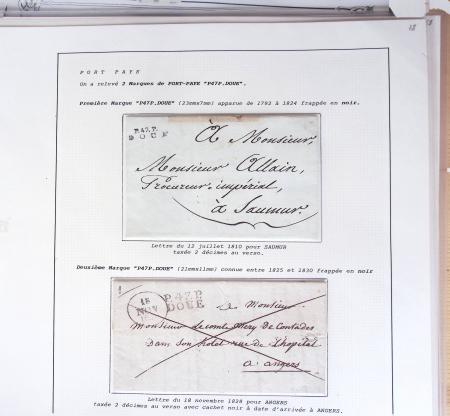 18
PORT PAYE
On a relevé 2 Marques de PORT-PAYE "P47P.DOUE".
Première Marque "P47P.DOUE" (23mmx7mm) apparue de 1792 à 1824 frappée en noir.
P.47.P.
DOUE
à Monsieur,
Monsieur Allain,
Procureur impérial,
à Saumur.
Lettre du 12 juillet 1810 pour SAUMUR
taxée 2 décimes au verso.
Deuxième Marque "P47P.DOUE" (21mmx11mm) connue entre 1825 et 1830 frappée en noir
18
NOV
P.47.P.
DOUE
a Monsieur
Monsieur le comte Mery De Contades
Dans son hotel rue de l'hopital
a angers
Lettre du 18 novembre 1828 pour ANGERS
taxée 2 décimes au verso avec cachet noir à date d'arrivée à ANGERS.